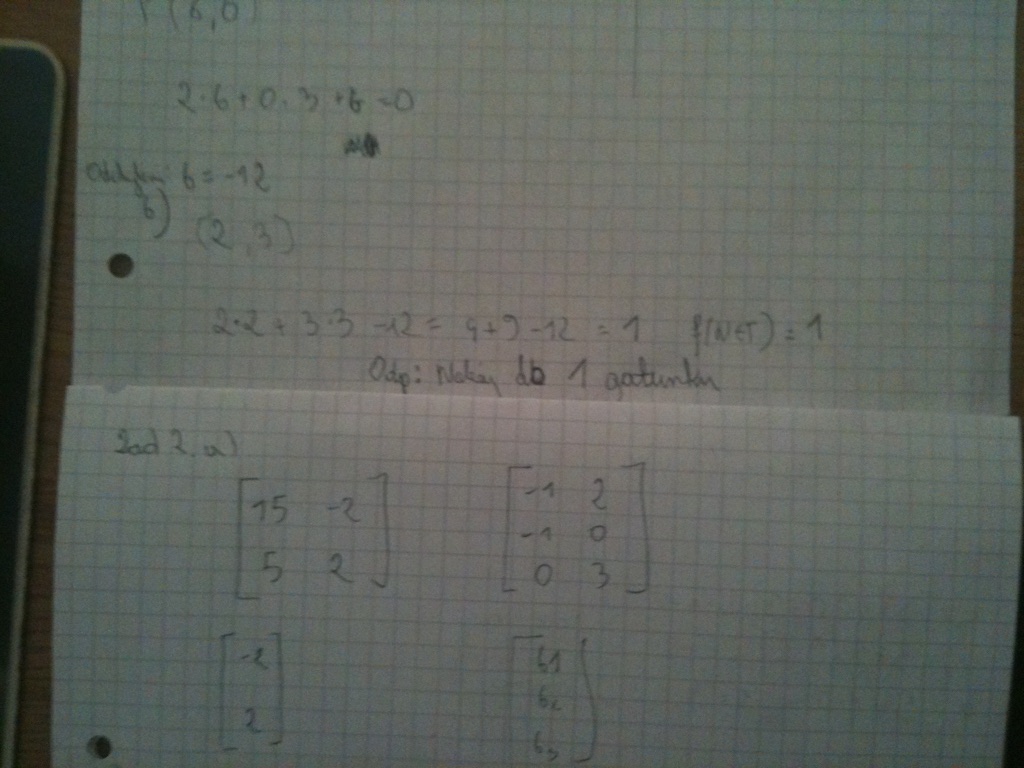 (6,0)
2·6+0·3+b=0
b=-12
b)
(2,3)
2·2+3·3-12=4+9-12=1 f(NET)=1
Odp: Należy do 1 gatunku
Zad 2. a)
15 -2 -1 2
-1 0
5 2 0 3
-2 b1
b2
2 b3